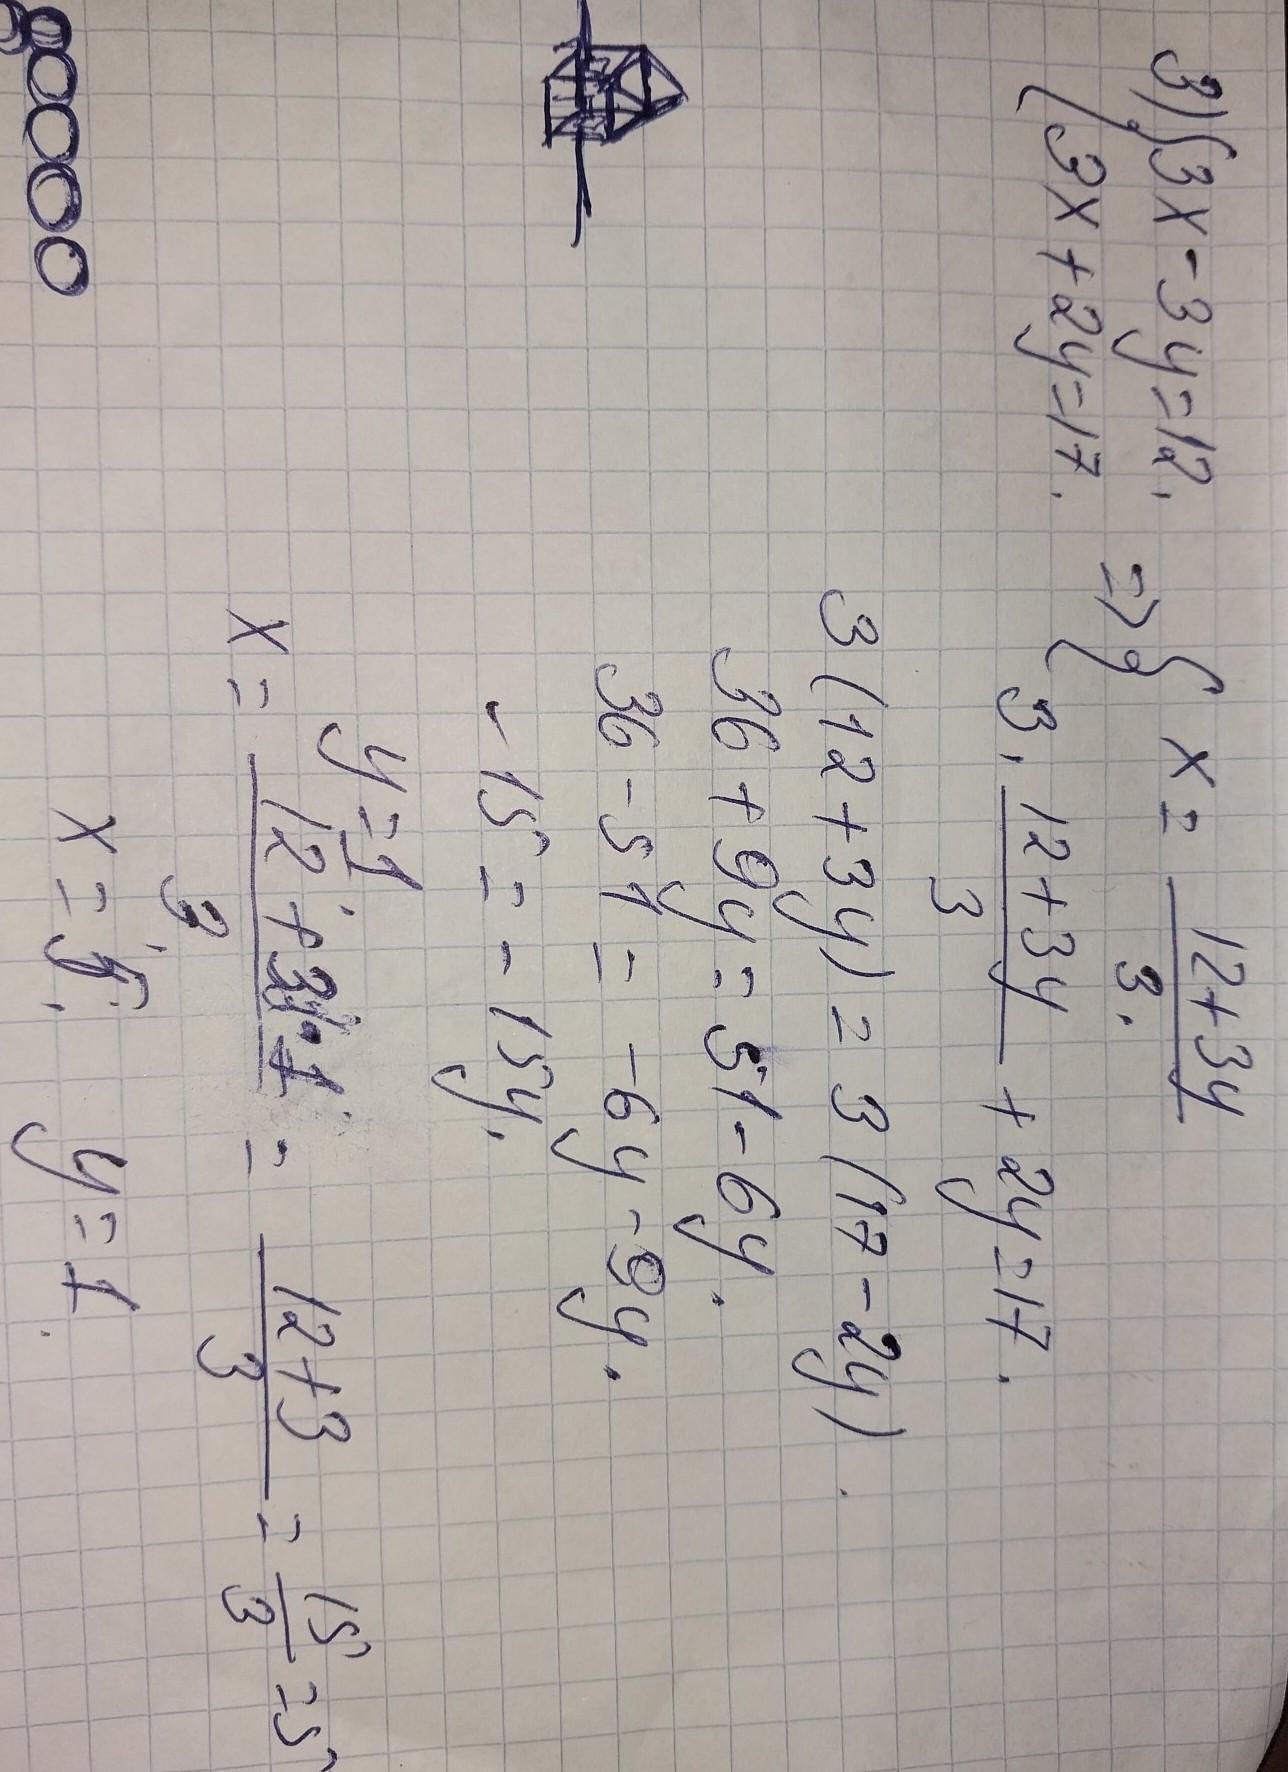 3) { 3x - 3y = 12, => { x = (12+3y)/3.
{ 3x + 2y = 17. 3 · (12+3y)/3 + 2y = 17.
3(12+3y) = 3(17-2y).
36 + 9y = 51 - 6y.
36 - 51 = -6y - 9y.
-15 = -15y.
y = 1
x = (12+3·1)/3 = (12+3)/3 = 15/3 = 5
x = 5. y = 1.